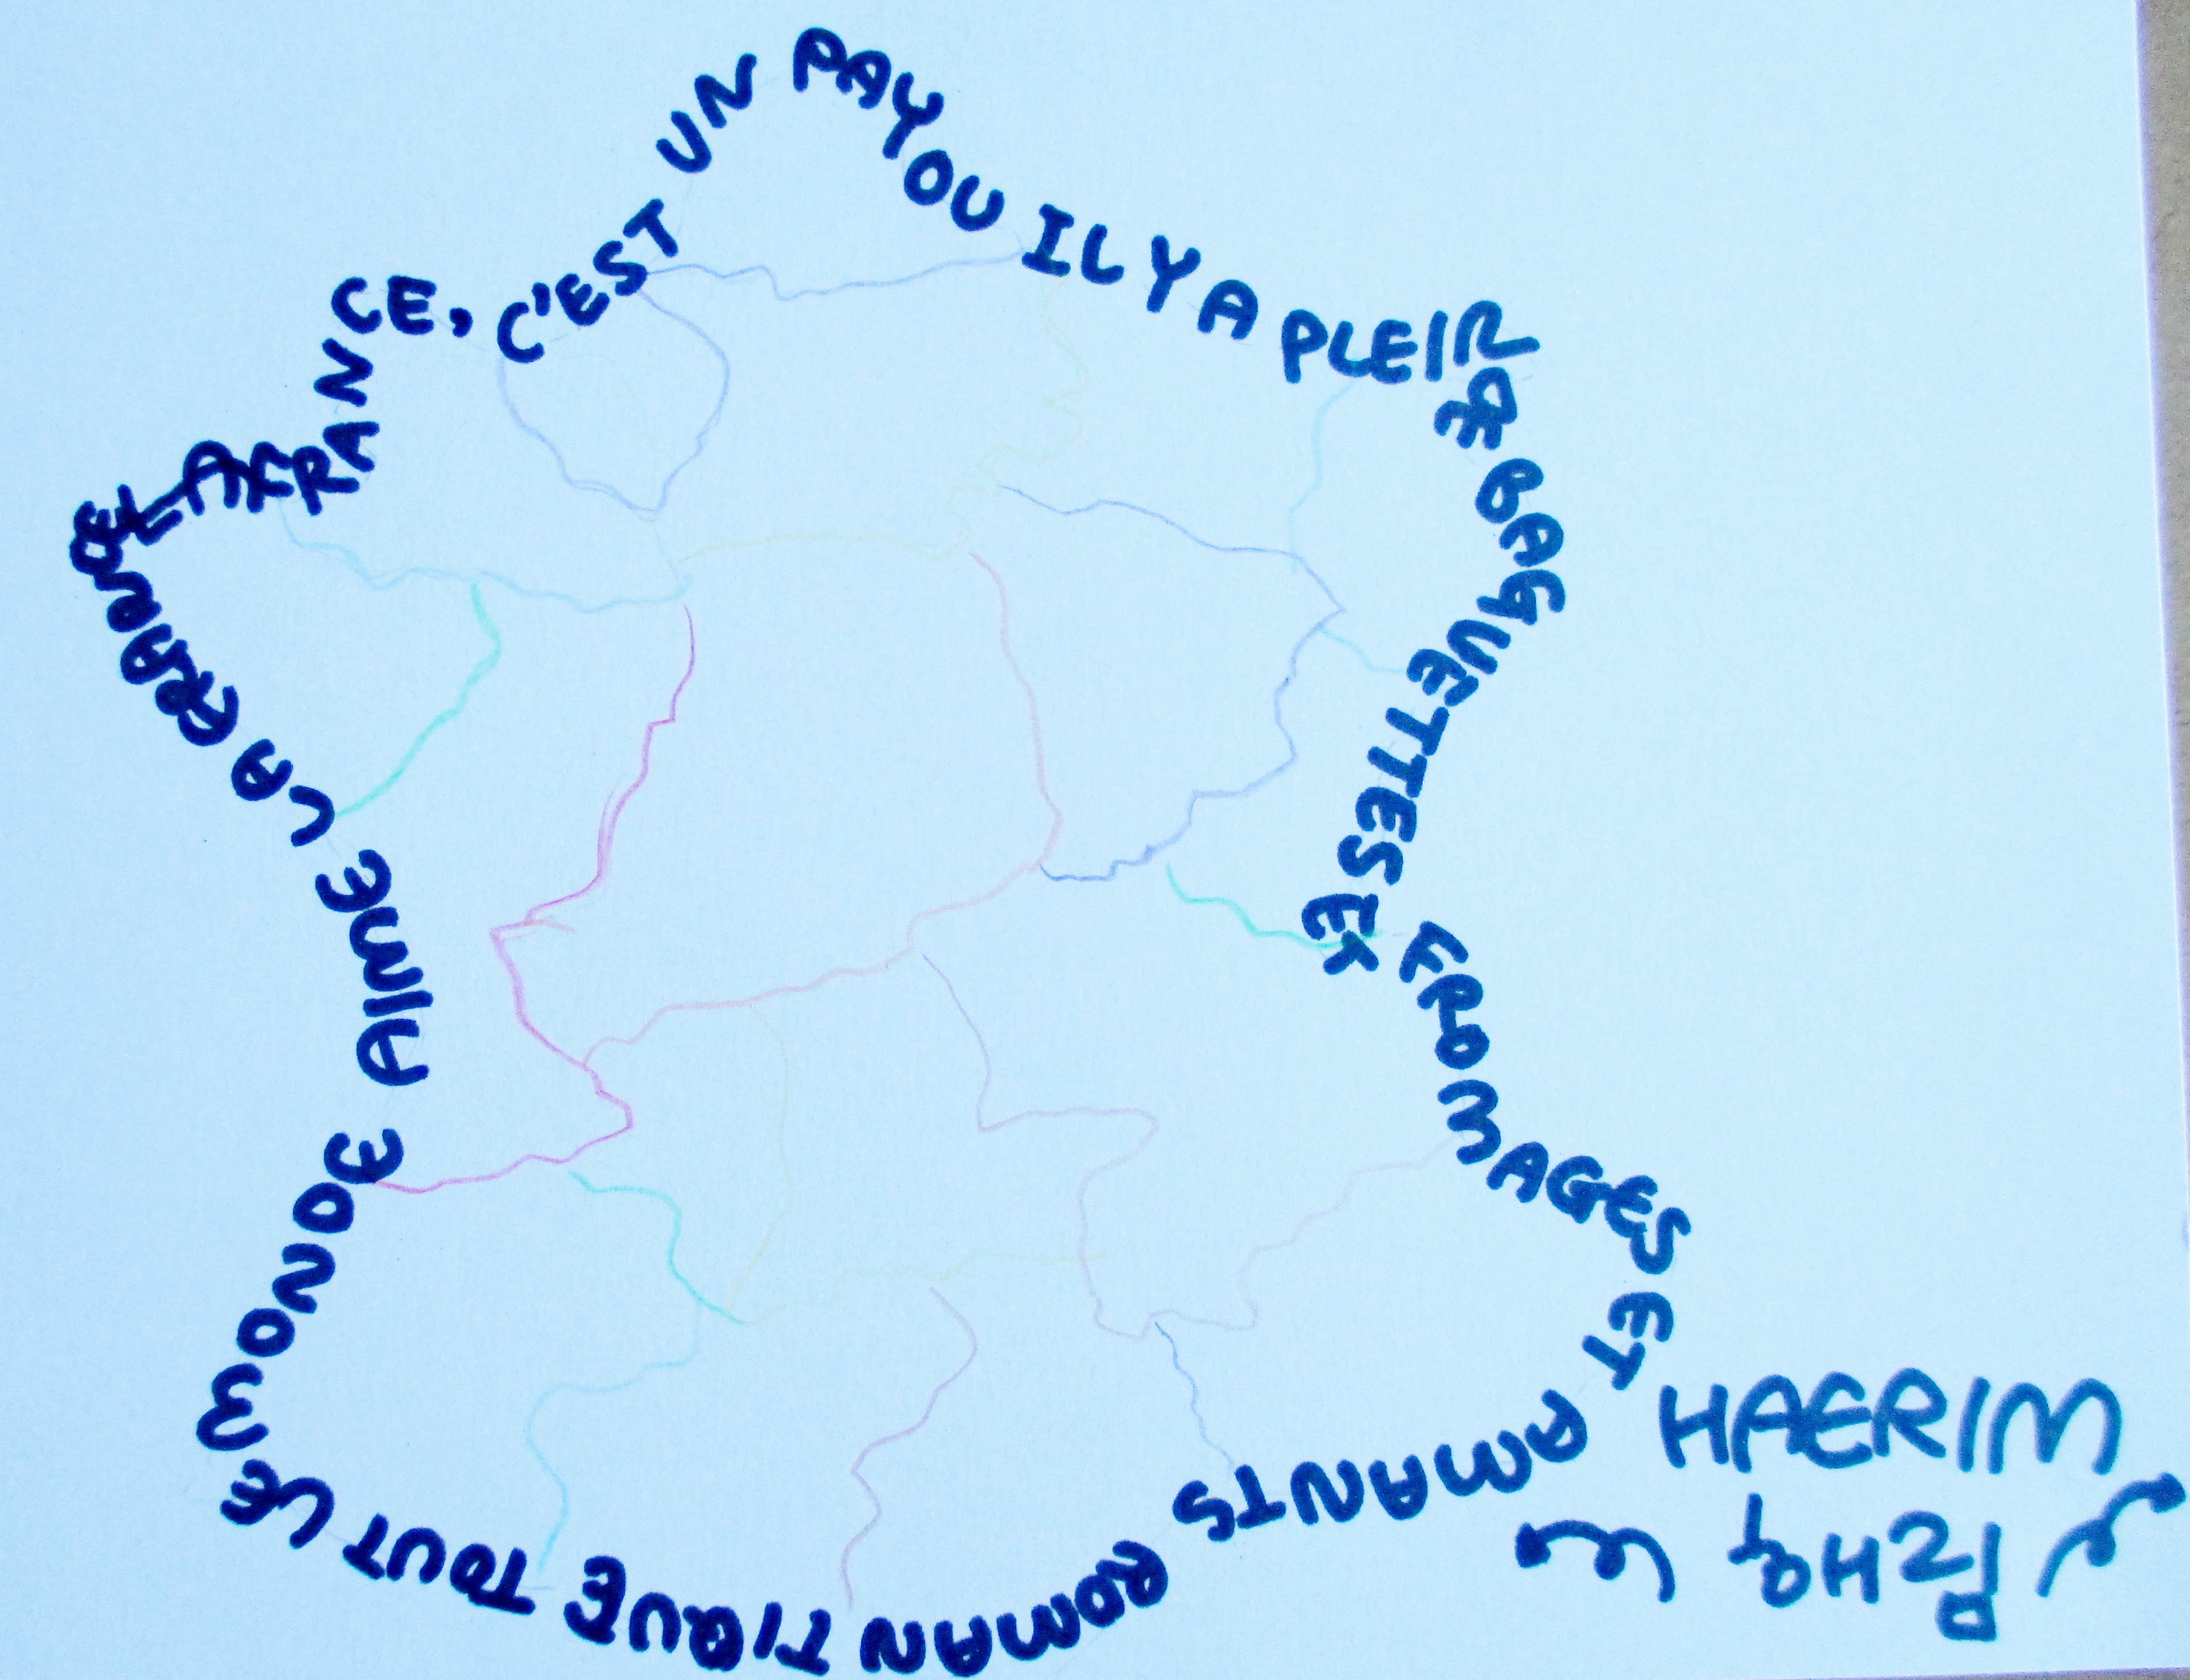 LA FRANCE, C'EST UN PAY OU IL Y A PLEIN DE BAGUETTES ET FROMAGES ET AMANTS ROMANTIQUE TOUT LE MONDE AIME LA FRANCE
HAERIM
해림